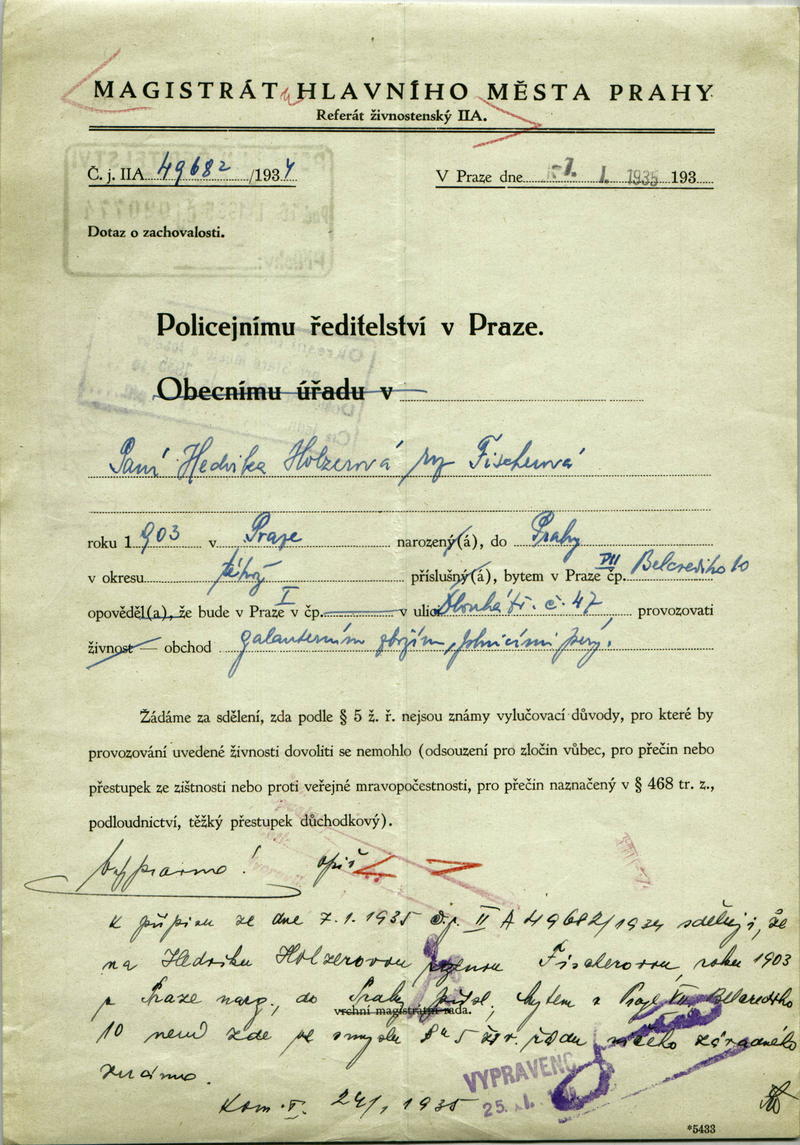 MAGISTRÁT HLAVNÍHO MĚSTA PRAHY
Referát živnostenský IIA.
Č. j. IIA 49682 /1934
V Praze dne -7. I. 1935 193
Dotaz o zachovalosti.
Policejnímu ředitelství v Praze.
Obecnímu úřadu v
Paní Hedvika Holzerová Fischerová
roku 1903 v Praze narozený(á), do Prahy
v okresu příslušný(á), bytem v Praze čp. VII Belcrediho 10
opověděl(a), že bude v Praze v čp. I v ulici Dlouhá tř. č. 47 provozovati
živnost — obchod galanterním zbožím,
Žádáme za sdělení, zda podle § 5 ž. ř. nejsou známy vylučovací důvody, pro které by
provozování uvedené živnosti dovoliti se nemohlo (odsouzení pro zločin vůbec, pro přečin nebo
přestupek ze zištnosti nebo proti veřejné mravopočestnosti, pro přečin naznačený v § 468 tr. z.,
podloudnictví, těžký přestupek důchodkový).
opis
K přípisu ze dne 7.1.1935 č.j. II A 49682/1934 sděluji, že
na Hedviku Holzerovou Fischerovou, roku 1903
v Praze nar., do Prahy přísl., bytem v Praze VII Belcrediho
vrchní magistrátní rada.
10 není zde ve smyslu § 5 živ. řádu ničeho závadného
známo.
Kom. I. 24/1 1935
VYPRAVENO
25. I.
*5433